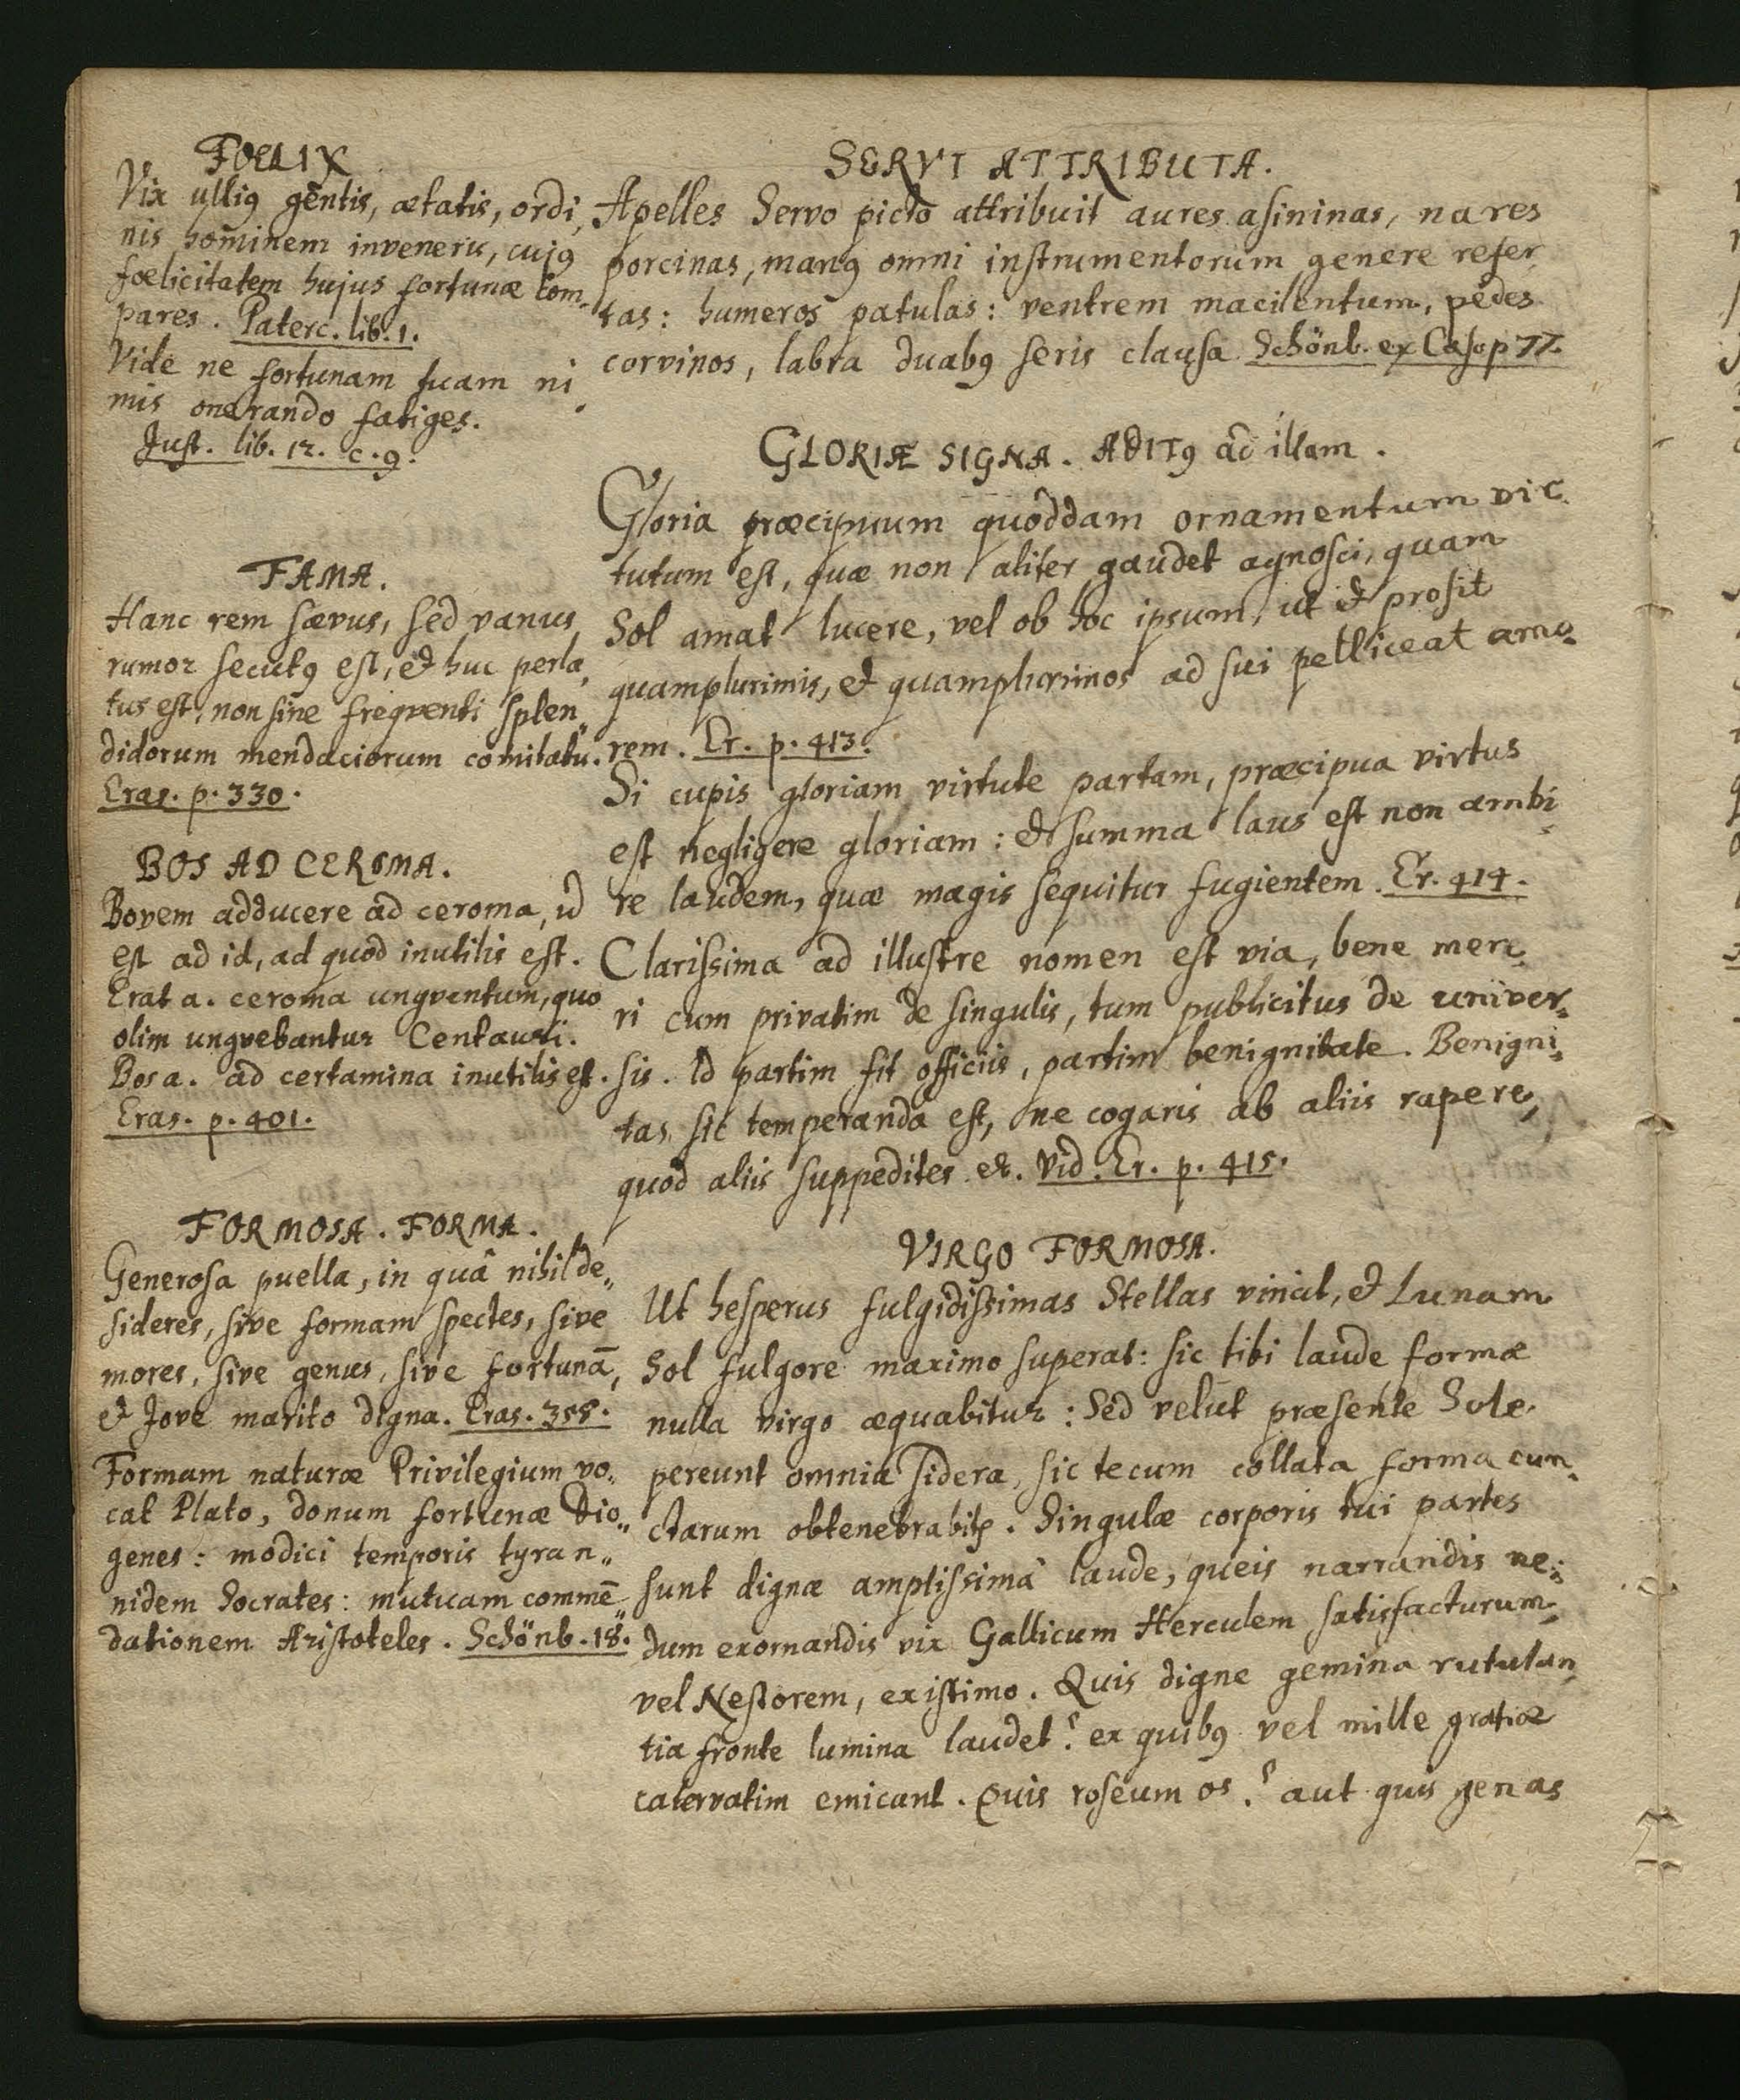 FOELIX
Vix ulliꝰ gentis, ætatis, ordi,
nis hominem inveneris, cujꝰ
fœlicitatem hujus fortunæ com-
pares. Paterc. lib. 1.
Vide ne fortunam tuam ni,
mis onerando fatiges.
Just. lib. 12. c. 9.
FAMA.
Hanc rem sævus, sed vanus
rumor secutꝰ est, et huc perla,
tus est, non sine freqventi splen„
didorum mendaciorum comitatu.
Eras. p. 330.
BOS AD CEROMA.
Bovem adducere ad ceroma, id
est ad id, ad quod inutilis est.
Erat a. ceroma ungventum, quo
olim ungvebantur Centauri.
Bos a. ad certamina inutilis est.
Eras. p. 401.
FORMOSA. FORMA.
Generosa puella, in quâ nihil de„
sideres, sive formam spectes, sive
mores, sive genus, sive fortunā,
et Jove marito digna. Eras. 358.
Formam naturæ Privilegium vo„
cat Plato, donum fortunæ Dio„
genes: modici temporis tyran„
nidem Socrates: mutuam commē„
dationem Aristoteles. Schönb. 18.
SERVI ATTRIBUTA.
Apelles Servo picto attribuit aures asininas, nares
porcinas, manꝰ omni instrumentorum genere refer,
tas: humeros patulas: ventrem macilentum, pedes
corvinos, labra duabꝰ seris clausa. Schönb. ex Caso p 77.
GLORIÆ SIGNA. ADITꝰ ad illam.
Gloria præcipuum quoddam ornamentum vir,
tutum est, quæ non aliter gaudet agnosci, quam
Sol amat lucere, vel ob hoc ipsum, ut et prosit
quamplurimis, et quamplurimos ad sui pelliceat amo-
rem. Er. p. 413.
Si cupis gloriam virtute partam, præcipua virtus
est negligere gloriam: et summa laus est non ambi,
re laudem, quæ magis sequitur fugientem. Er. 414.
Clarissima ad illustre nomen est via, bene mere,
ri cum privatim de singulis, tum publicitus de univer-
sis. Id partim fit officiis, partim benignitate. Benigni„
tas sic temperanda est, ne cogaris ab aliis rapere,
quod aliis suppedites et. Vid. Er. p. 415.
VIRGO FORMOSA.
Ut hesperus fulgidissimas Stellas vincit, et Lunam
Sol fulgore maximo superat: sic tibi laude formæ
nulla virgo æquabitur: Sed velut præsente Sole
pereunt omnia sidera, sic tecum collata forma cun-
ctarum obtenebrabitꝛ. Singulæ corporis tui partes
sunt dignæ amplissimâ laude, queis narrandis ne-
dum exornandis vix Gallicum Herculem satisfacturum,
vel Nestorem, existimo. Quis digne gemina rutulan,
tia fronte lumina laudet? ex quibꝰ vel mille gratiæ
catervatim emicant. Quis roseum os? aut quis genas